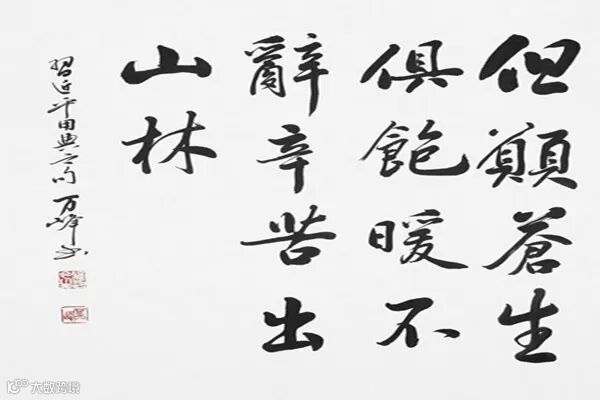 但願蒼生
俱飽暖不
辭辛苦出
山林
習近平用典之句 万峰书
大数跨境